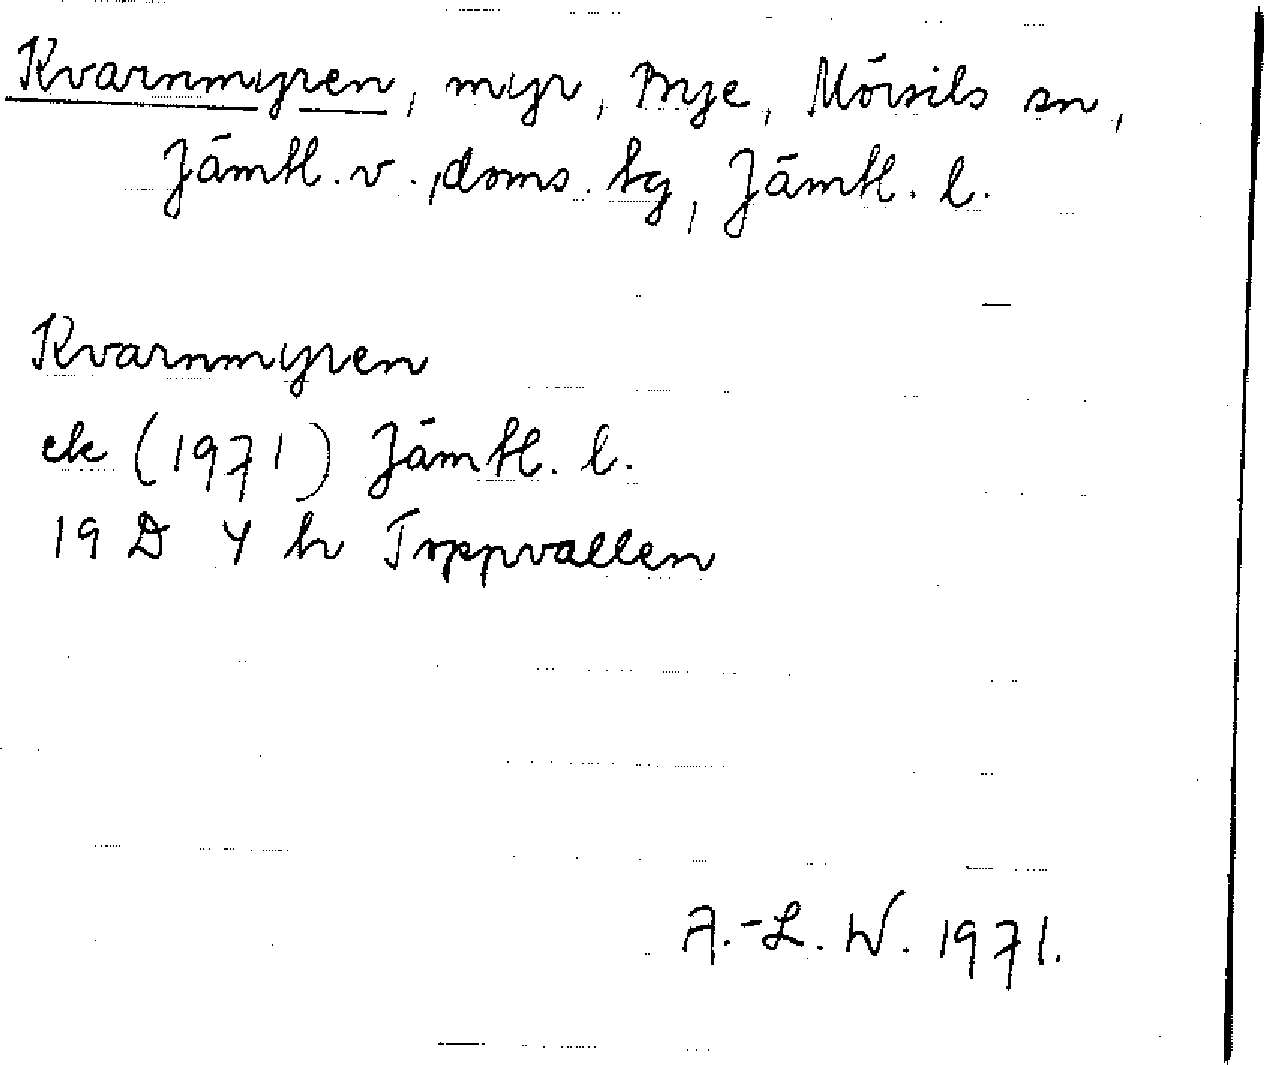 Kvarnmyren, myr, Bye, Mörsils sn,
Jämtl. v., doms. tg, Jämtl. l.
Kvarnmyren
ek (1971) Jämtl. l.
19 D 4 h Toppvallen
A.-L. W. 1971.